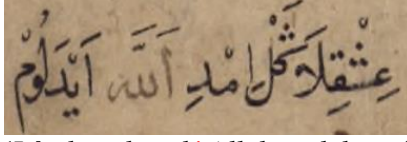 عِشْقِلَا ڭَلْ اِمْدِ اَللّٰه اَيْدَلُومْ